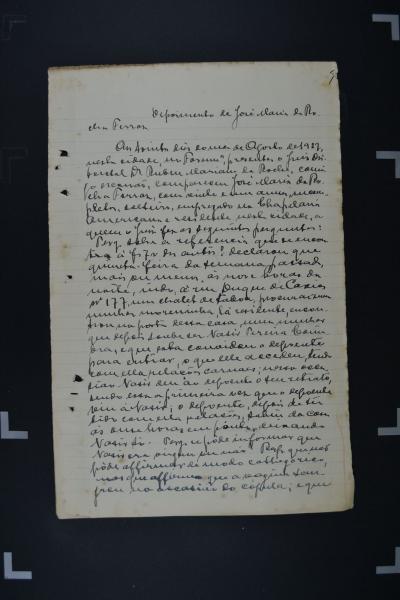 Depoimento de José Maria da Ro-
cha Ferraz
Aos trinta dias do mez de Agosto de 1927,
nesta cidade, no "Forum", presentes o Juiz Dis-
trictal Dr Ruben Mariano da Rocha, comi-
go escrivão, compareceu José Maria da Ro-
cha Ferraz, com vinte e um annos, incom-
pletos, solteiro, empregado na Chapelaria
Americana e residente nesta cidade, a
quem o Juiz fez as seguintes perguntas:
Perg. sobre a referencia que se encon-
tra á fs 7 dos autos? declarou que
quinta-feira da semana passada,
mais ou menos, ás nove horas da
noite, indo á rua Duque de Caxias
nº 177, um chalet de taboa, procurar uma
moreninha, lá residente, encon-
trou na porta dessa casa, uma mulher
que depois soube ser Nasis Pereira
e que esta convidou o depoente
para entrar, o que elle accedeu, tendo
com ella relações carnaes; nessa occa-
sião Nasis deu ao depoente o seu retrato,
sendo essa a primeira vez que o depoente
viu a Nasis; o depoente, depois de ter
tido com ella relações, sahiu da casa
ás dez horas em ponto, deixando
Nasis só. Perg. se póde informar que
Nasis era virgem ou não? Resp. que não
póde affirmar de modo cathegorico,
mas que affirma que a vagina
na occasião da cópula; e que